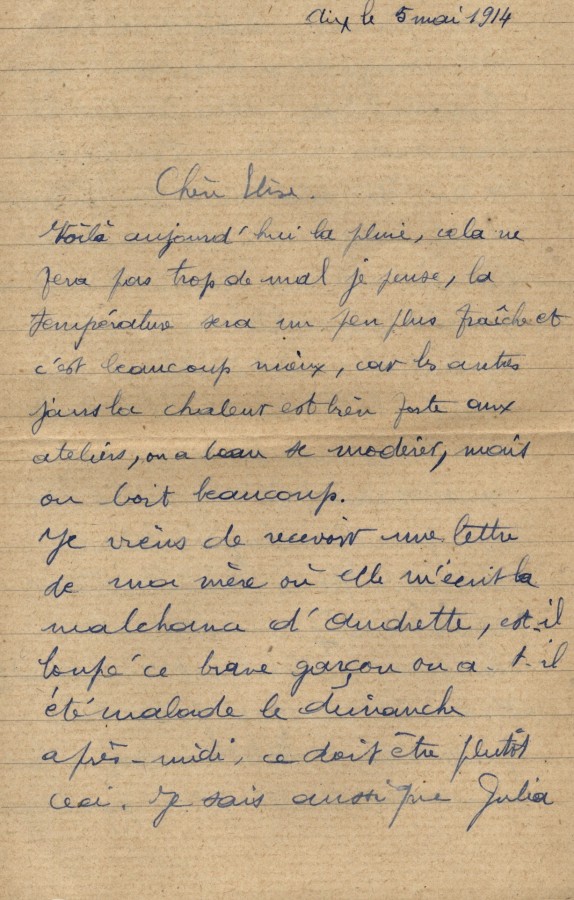 Aix le 5 mai 1914
Chère Elise.
Voilà aujourd'hui la pluie, cela ne
fera pas trop de mal je pense, la
température sera un peu plus fraîche et
c'est beaucoup mieux, car les autres
jours la chaleur est bien forte aux
ateliers, on a beau se modérer, mais
on boit beaucoup.
Je viens de recevoir une lettre
de ma mère où elle m'écrit la
malchance d'Audrette, est-il
loupé ce brave garçon ou a-t-il
été malade le dimanche
après-midi, ce doit être plutôt
ceci. Je sais aussi que Julia